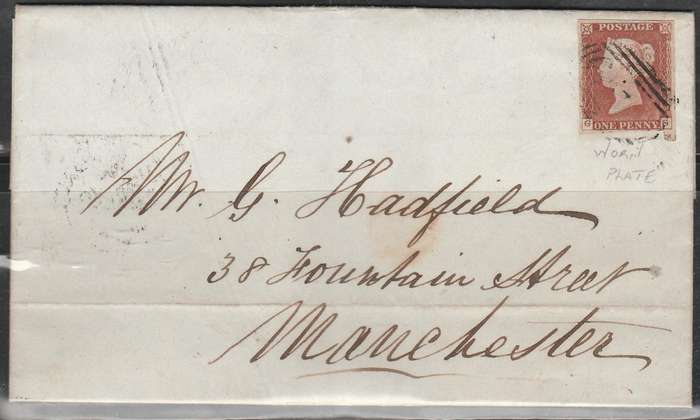 POSTAGE
G G
ONE PENNY
WORN
PLATE
Mr. G. Hadfield
38 Fountain Street
Manchester